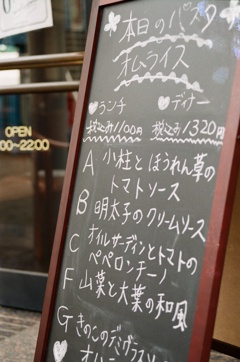 本日のパスタ
オムライス
ランチ ディナー
税込み1100円 税込み1320円
A 小柱とほうれん草の
トマトソース
B 明太子のクリームソース
C オイルサーディンとトマトの
ペペロンチーノ
F 山菜と大葉の和風
G きのこのデミグラスソース
オムライス
OPEN
00~22:00